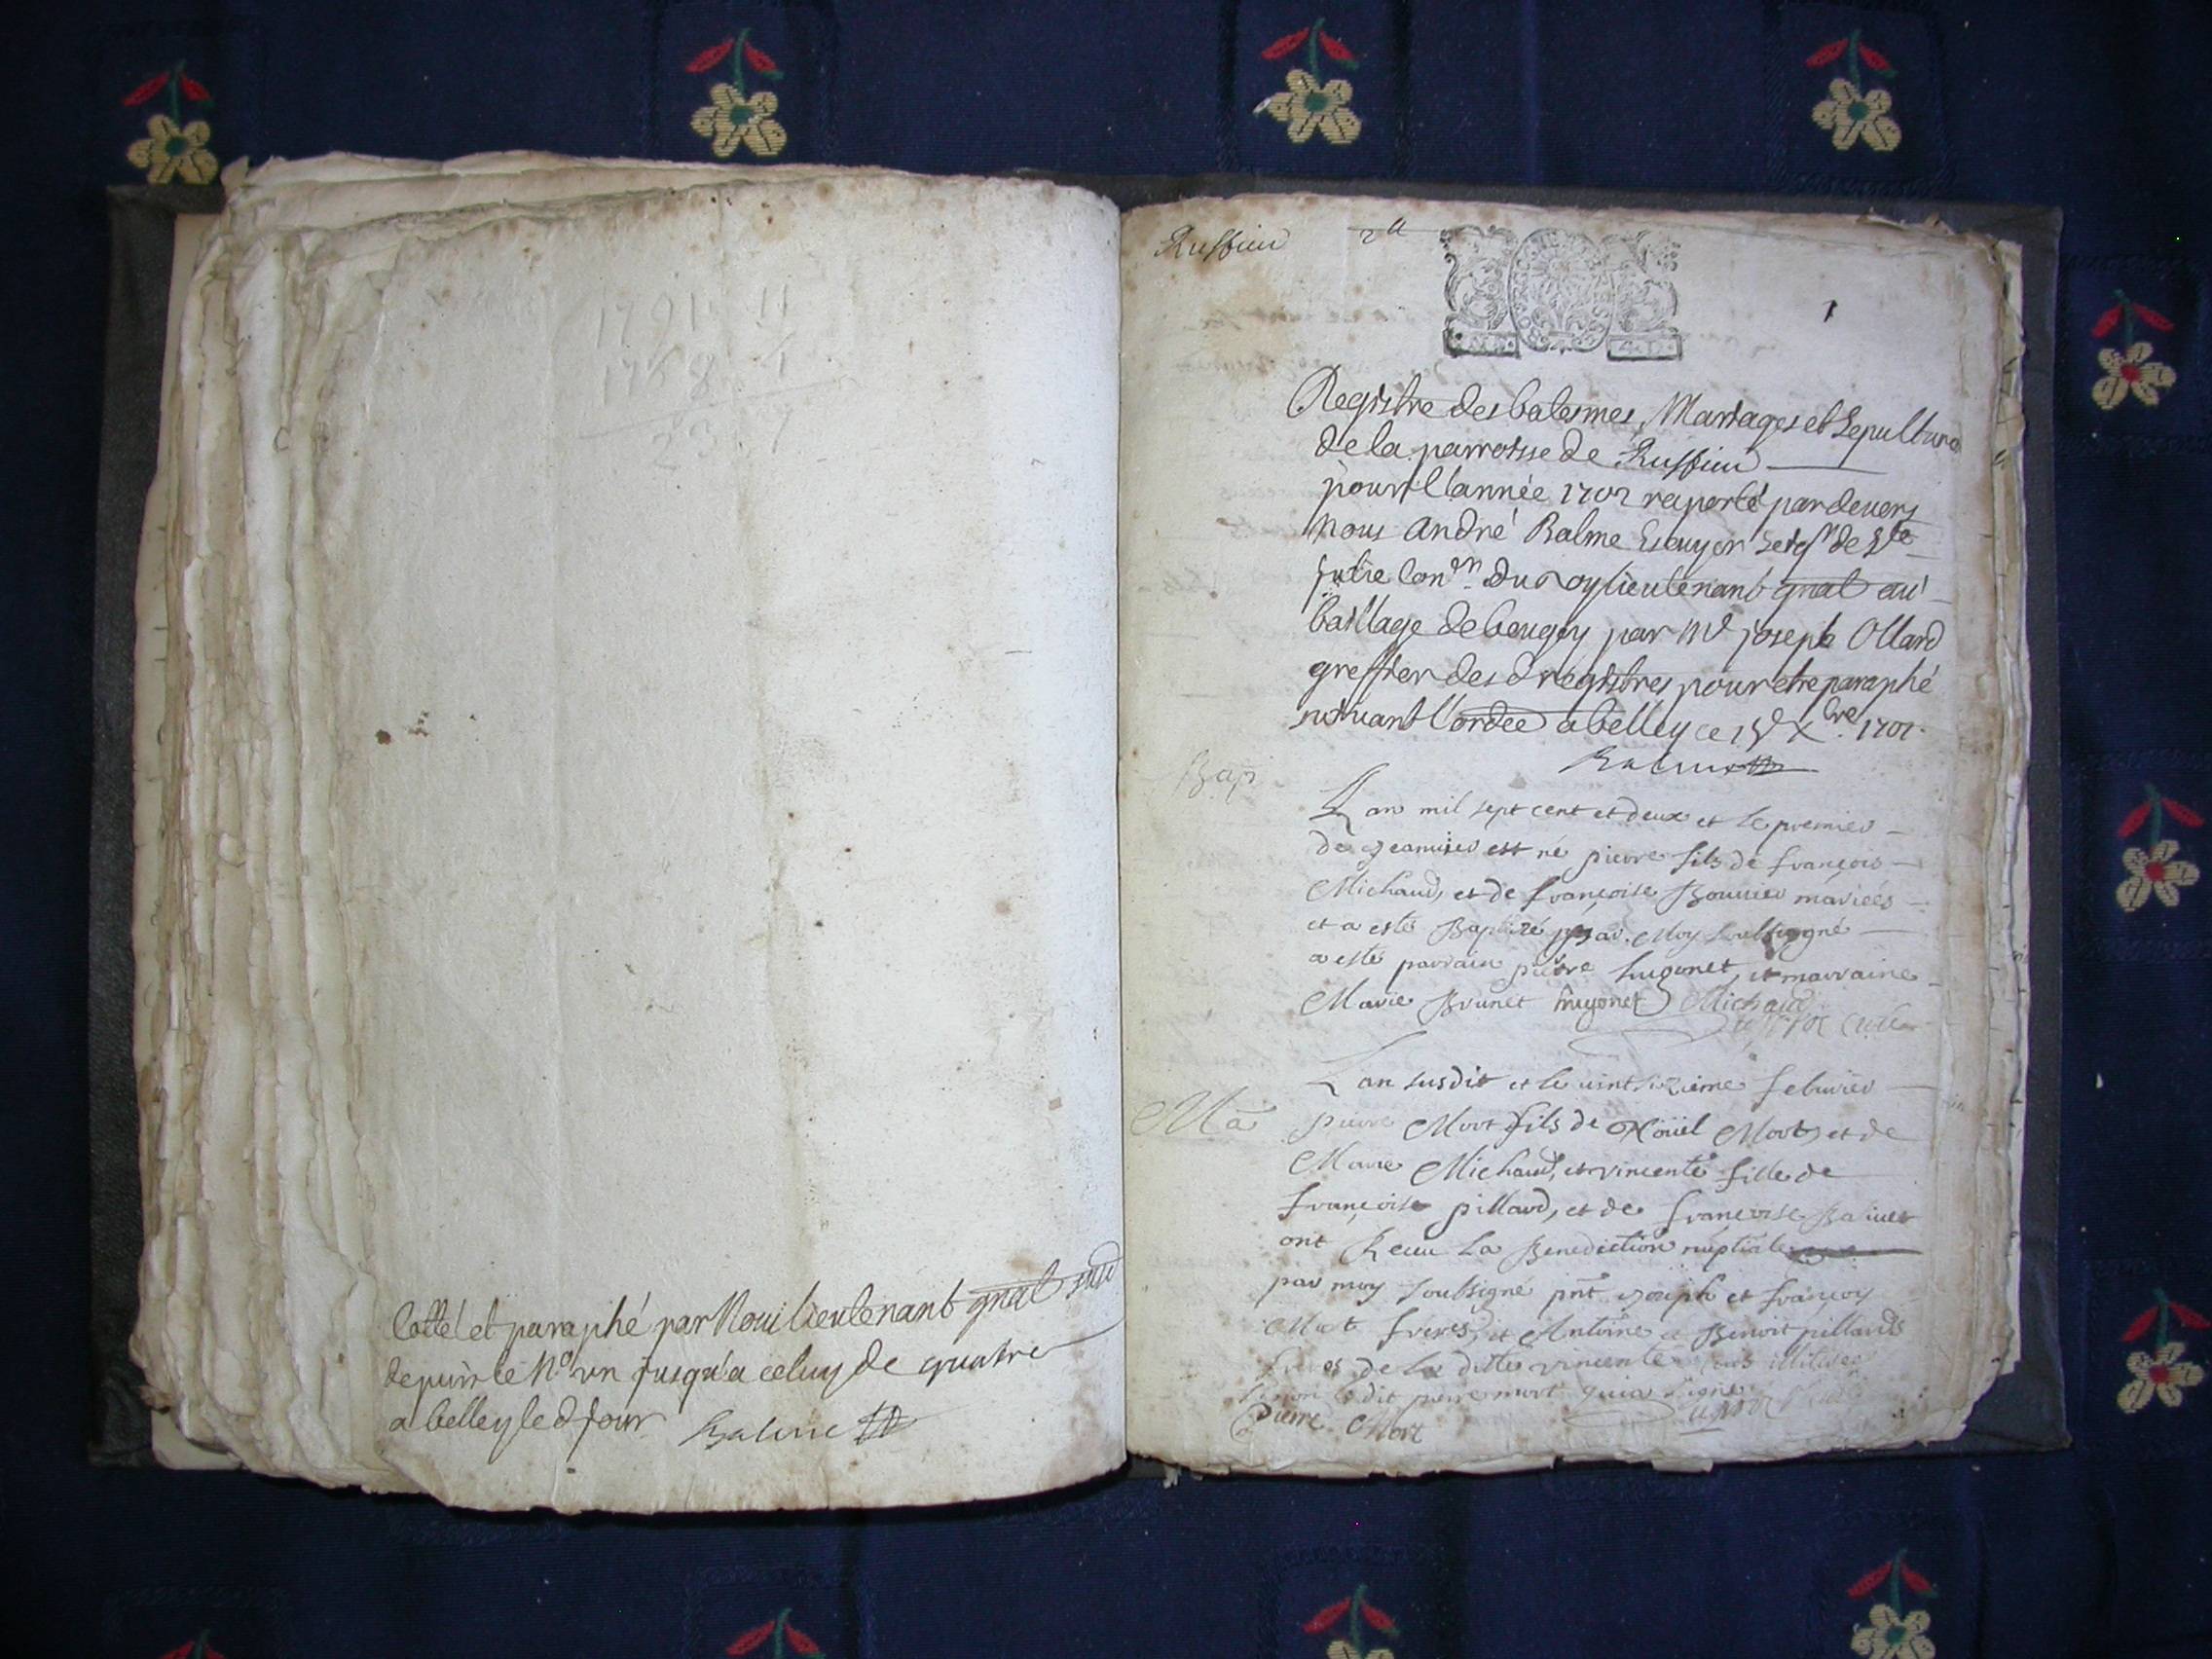 1791 11
1768 4
23 7
Cotté et paraphé par Nous lieutenant gnal susd
depuis le No un jusqu'a celuy de quatre
a belley led jour Balme
Ruffieu
1
Registre des batesmes, Mariages et Sepultures
de la parroisse de Ruffieu
pour l'année 1702 raporté pardevers
Nous André Balme Escuyer Seigr de Ste
Julie Coner du roy lieutenant gnal au
bailliage de beugey par Me joseph Ollard
greffier des d registres pour etre paraphé
suivant l'ordce a belley ce Xbre 1701
Balme
Bap
L an mil sept cent et deux et le premier
de Jeanvier est né pierre fils de françois
Michaud, et de françoise Bouvier mariées
et a estés Baptizé par Moy soubsigné
a estés parrain pierre hugonet, et marraine
Marie Brunet hugonet Michaud
L an susdit et le vint sizieme febvrier
Ma
pierre Mort fils de Noüel Mort, et de
Marie Michaud, et vincente fille de
françoise pillard, et de françoise
ont Receu La Benediction nuptiale
par moy soubsigné pnt joseph et françoy
Mort freres, et Antoine et Benoit pillards
freres de la ditte vincente
le dit pierre mort qui a signé
Pierre Mort